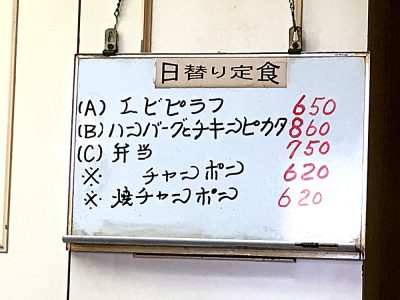 日替り定食
(A) エビピラフ 650
(B) ハンバーグとチキンピカタ 860
(C) 弁当 750
※ チャンポン 620
※ 焼チャンポン 620